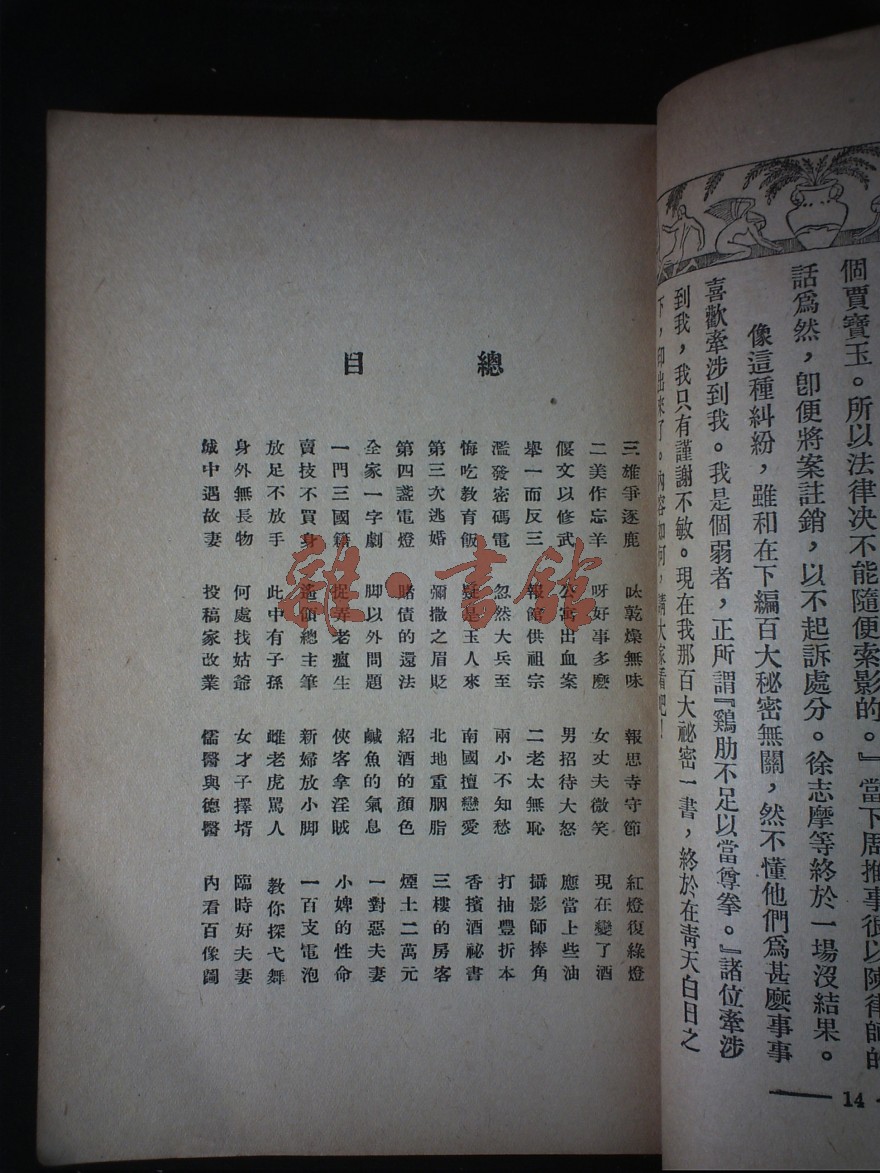 個賈寶玉。所以法律决不能隨便索影的。』當下周推事很以陳律師的
話爲然,卽便將案註銷,以不起訴處分。徐志摩等終於一場沒結果。
像這種糾紛,雖和在下編百大秘密無關,然不懂他們爲甚麼事事
喜歡牽涉到我。我是個弱者,正所謂『鷄肋不足以當尊拳。』諸位牽涉
到我,我只有謹謝不敏。現在我那百大祕密一書,終於在靑天白日之
下,印出來了。內容如何,請大家看吧!
14
總目
三雄爭逐鹿 呔乾燥無味 報思寺守節 紅燈復綠燈
二美作忘羊 呀好事多麽 女丈夫微笑 現在變了酒
偃文以修武 公寓出血案 男招待大怒 應當上些油
舉一而反三 報館供祖宗 二老太無恥 攝影師捧角
濫發密碼電 忽然大兵至 兩小不知愁 打抽豐折本
悔吃教育飯 疑是玉人來 南國擅戀愛 香擯酒祕書
第三次逃婚 彌撒之眉眨 北地重胭脂 三樓的房客
第四盞電燈 賭債的還法 紹酒的顏色 煙土二萬元
全家一字劇 脚以外問題 鹹魚的氣息 一對惡夫妻
一門三國籍 捉弄老瘟生 俠客拿淫賊 小婢的性命
賣技不買身 遙領總主筆 新婦放小脚 一百支電泡
放足不放手 此中有子孫 雌老虎罵人 教你探弋舞
身外無長物 何處找姑爺 女才子擇壻 臨時好夫妻
城中遇故妻 投稿家改業 儒醫與德醫 內看百像圖
雜·書館